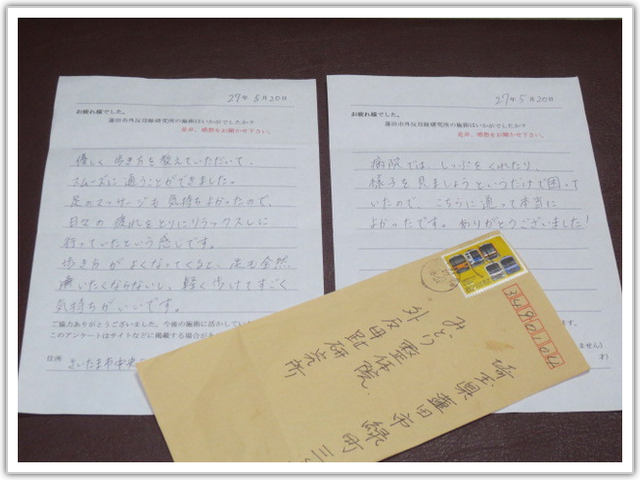 27年5月20日
お疲れ様でした。
蓮田市外反母趾研究所の施術はいかがでしたか?
是非、感想をお聞かせ下さい。
優しく歩き方を教えていただいて、
スムーズに通うことができました。
足のマッサージも気持ちよかったので、
日々の疲れをとりにリラックスしに
行っていたという感じです。
歩き方がよくなってくると、足も全然
痛いたくならないし、軽く歩けてすごく
気持ちがいいです。
ご協力ありがとうございました。今後の施術に活かしてい
このアンケートはサイトなどに掲載する場合が
住所 さいたま市中央
27年5月20日
お疲れ様でした。
蓮田市外反母趾研究所の施術はいかがでしたか?
是非、感想をお聞かせ下さい。
病院では、しっぷをくれたり、
様子を見ましょうというだけで困って
いたので、こちらに通って本当に
よかったです。ありがとうございました!
ません)
才)
埼玉県蓮田市緑町三
みどり整体院
外反母趾研究所